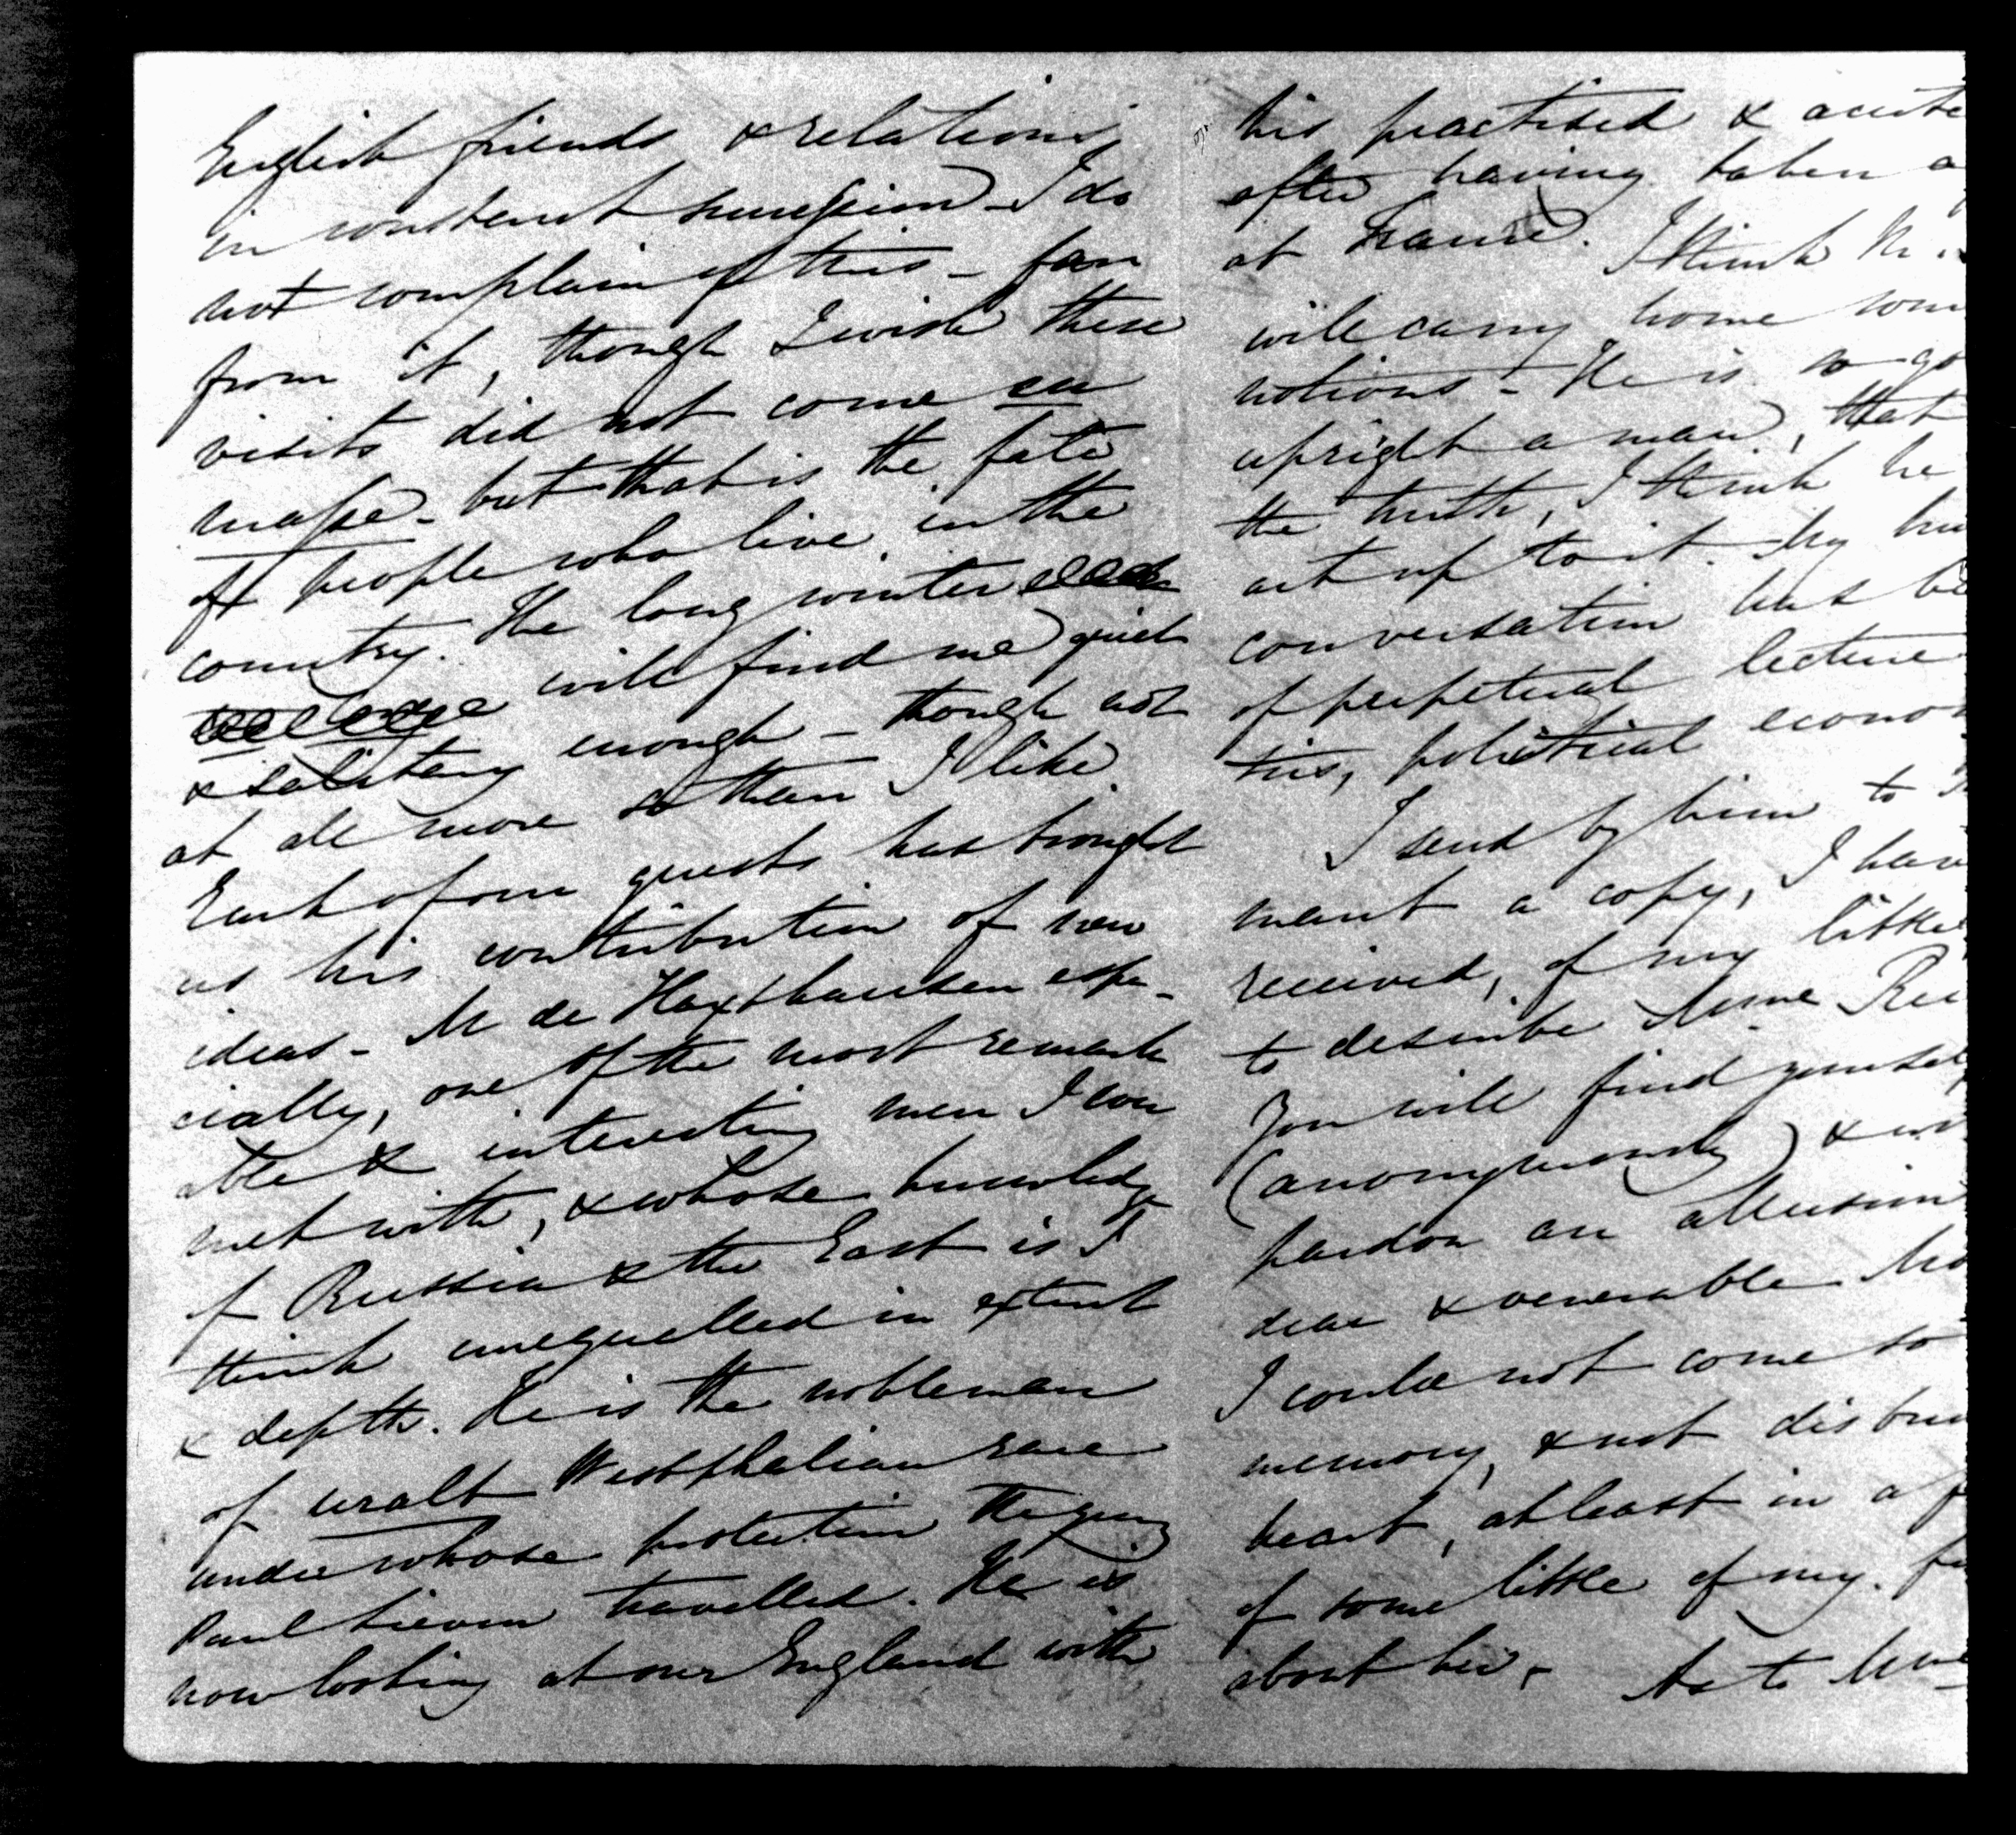 English friends & relations
in constant succession - I do
not complain of this - far
from it, though I wish these
visits did not come en
masse - but that is the fate
of people who live in the
country. The long winter
will find me quiet
& solitary enough - though not
at all more so than I like.
Each of our guests has brought
us his contribution of new
ideas - M de Haxthausen espe-
cially, one of the most remark
able & interesting men I ever
met with, & whose knowledge
of Russia & the East is I
think unequalled in extent
& depth. He is the nobleman
of uralt Westphalian race
under whose protection the young
Paul Lieven travelled. He is
now looking at our England with
his practised & acute
after having taken a
at France. I think
will carry home
notions - He is so
upright a man, that
the truth, I think he
act up to it. My
conversation has
of perpetual lecture
tics, political
I send by him to
want a copy, I have
received, of my little
to describe Mme
You will find
(anonymously) &
pardon an allusion
dear & venerable
I could not come to
memory, & not
heart, at least in a
of some little of my
about her. As to Mme